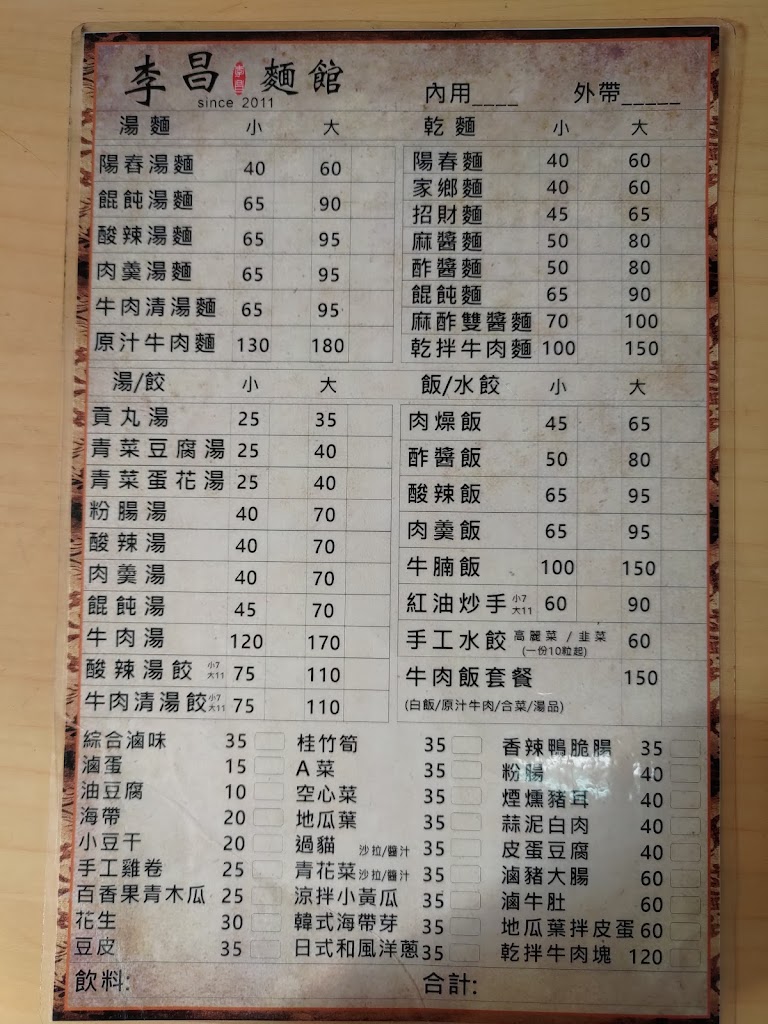 李昌 李昌 麵館
since 2011
內用____ 外帶_____
湯麵 小 大
陽春湯麵 40 60
餛飩湯麵 65 90
酸辣湯麵 65 95
肉羹湯麵 65 95
牛肉清湯麵 65 95
原汁牛肉麵 130 180
乾麵 小 大
陽春麵 40 60
家鄉麵 40 60
招財麵 45 65
麻醬麵 50 80
酢醬麵 50 80
餛飩麵 65 90
麻酢雙醬麵 70 100
乾拌牛肉麵 100 150
湯/餃 小 大
貢丸湯 25 35
青菜豆腐湯 25 40
青菜蛋花湯 25 40
粉腸湯 40 70
酸辣湯 40 70
肉羹湯 40 70
餛飩湯 45 70
牛肉湯 120 170
酸辣湯餃 小7 大11 75 110
牛肉清湯餃 小7 大11 75 110
飯/水餃 小 大
肉燥飯 45 65
酢醬飯 50 80
酸辣飯 65 95
肉羹飯 65 95
牛腩飯 100 150
紅油炒手 小7 大11 60 90
手工水餃 高麗菜 / 韭菜 (一份10粒起) 60
牛肉飯套餐 150
(白飯/原汁牛肉/合菜/湯品)
綜合滷味 35
滷蛋 15
油豆腐 10
海帶 20
小豆干 20
手工雞卷 25
百香果青木瓜 25
花生 30
豆皮 35
桂竹筍 35
A菜 35
空心菜 35
地瓜葉 35
過貓 沙拉/醬汁 35
青花菜 沙拉/醬汁 35
涼拌小黃瓜 35
韓式海帶芽 35
日式和風洋蔥 35
香辣鴨脆腸 35
粉腸 40
煙燻豬耳 40
蒜泥白肉 40
皮蛋豆腐 40
滷豬大腸 60
滷牛肚 60
地瓜葉拌皮蛋 60
乾拌牛肉塊 120
飲料: 合計: